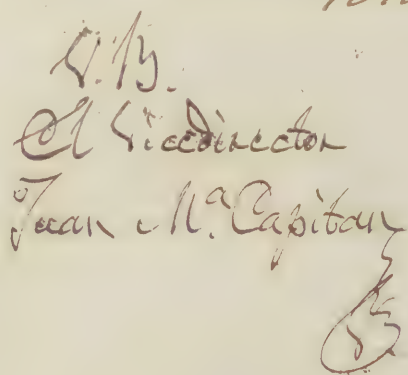 V. B.
El Vicedirector
Juan M.ª Capitan